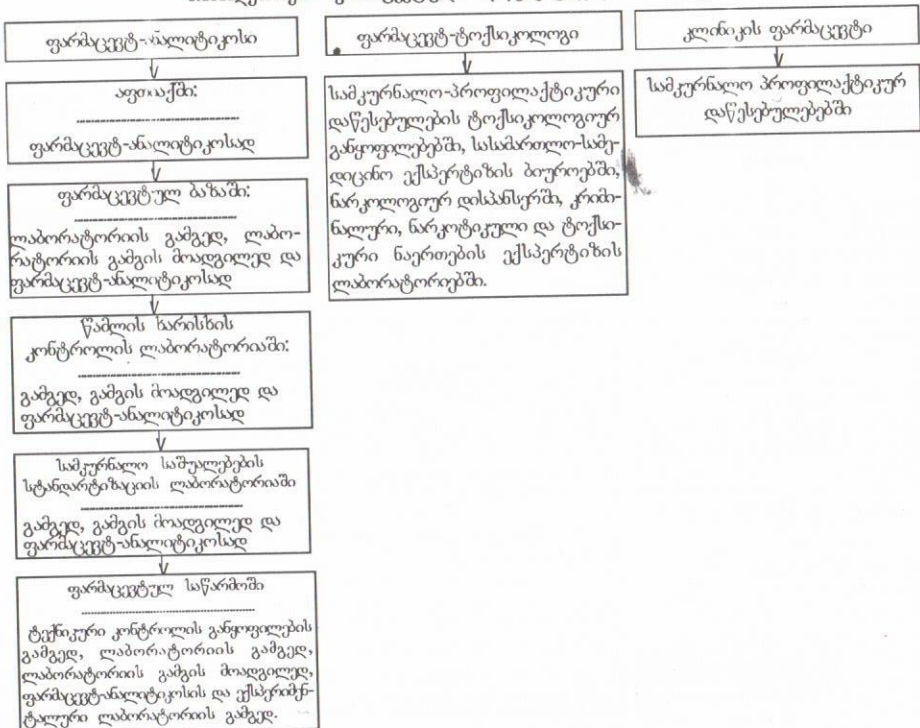 ფარმაცევტ-ანალიტიკოსი
აფთიაქში:
ფარმაცევტ-ანალიტიკოსად
ფარმაცევტულ ბაზაში:
ლაბორატორიის გამგედ, ლაბო-
რატორიის გამგის მოადგილედ და
ფარმაცევტ-ანალიტიკოსად
წამლის ხარისხის
კონტროლის ლაბორატორიაში:
გამგედ, გამგის მოადგილედ და
ფარმაცევტ-ანალიტიკოსად
სამკურნალო საშუალებების
სტანდარტიზაციის ლაბორატორიაში
გამგედ, გამგის მოადგილედ და
ფარმაცევტ-ანალიტიკოსად
ფარმაცევტულ საწარმოში
ტექნიკური კონტროლის განყოფილების
გამგედ, ლაბორატორიის გამგედ,
ლაბორატორიის გამგის მოადგილედ,
ფარმაცევტ-ანალიტიკოსის და ექსპერიმენ-
ტალური ლაბორატორიის გამგედ.
ფარმაცევტ-ტოქსიკოლოგი
სამკურნალო-პროფილაქტიკური
დაწესებულების ტოქსიკოლოგიურ
განყოფილებებში, სასამართლო-სამე-
დიცინო ექსპერტიზის ბიუროებში,
ნარკოლოგიურ დისპანსერში, კრიმი-
ნალური, ნარკოტიკული და ტოქსი-
კური ნაერთების ექსპერტიზის
ლაბორატორიებში.
კლინიკის ფარმაცევტი
სამკურნალო პროფილაქტიკურ
დაწესებულებებში